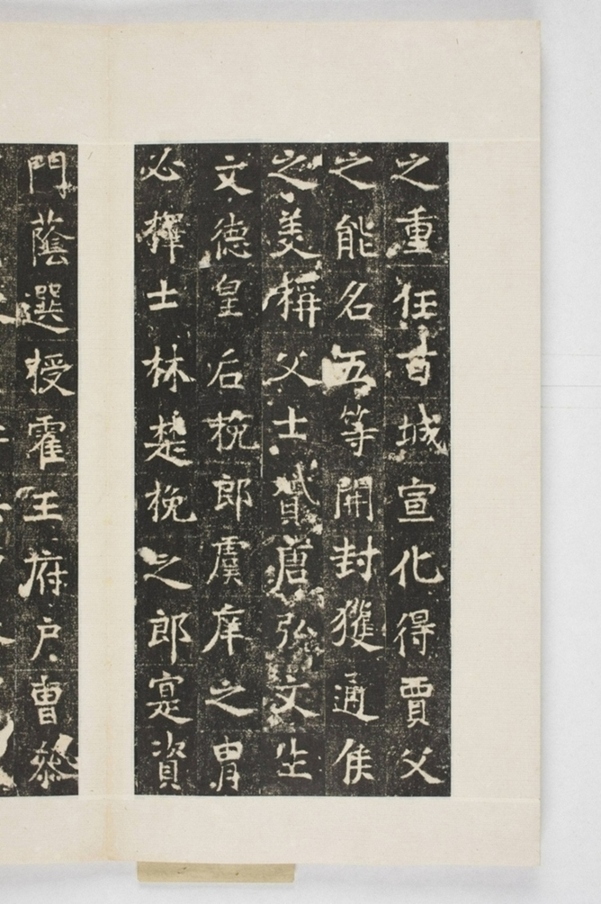 之重任百城宣化得賈父
之能名五等開封獲通侯
之美稱父士贇唐弘文生
文德皇后挽郎虞庠之胄
必擇士林楚挽之郎寔資
門蔭選授霍王府户曹叅